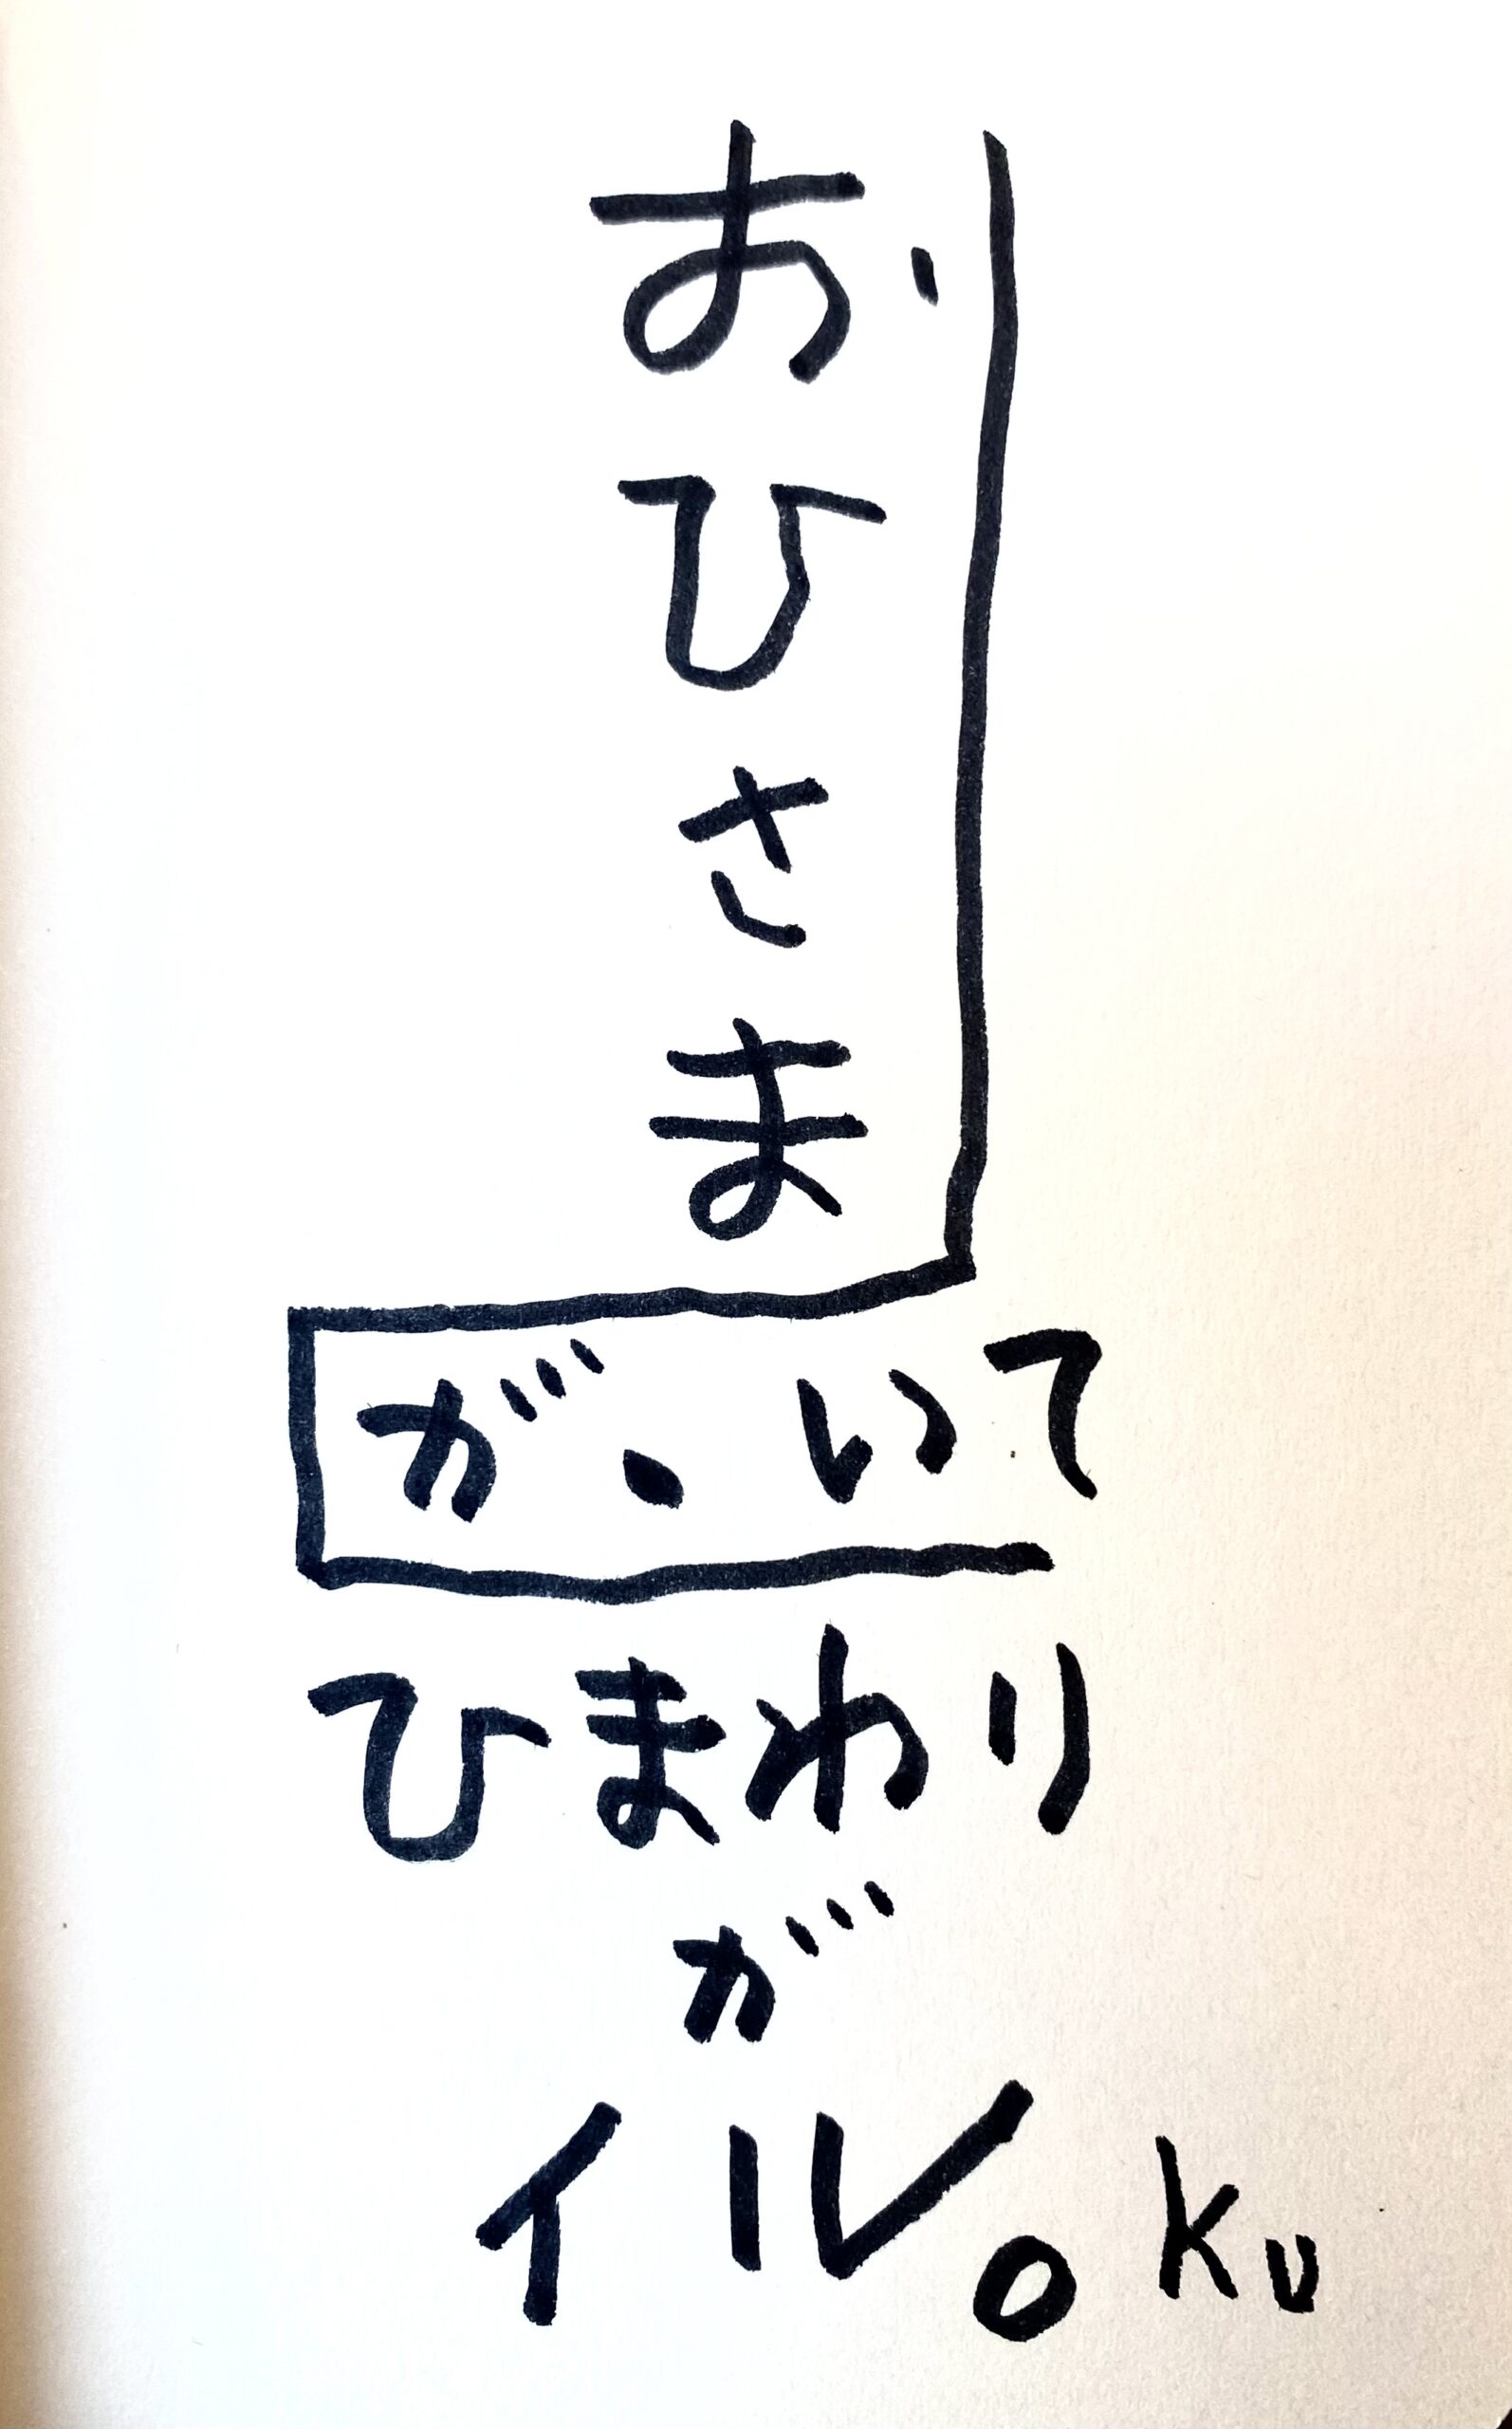 おひさま
が、いて
ひまわり
が
イル。Ku